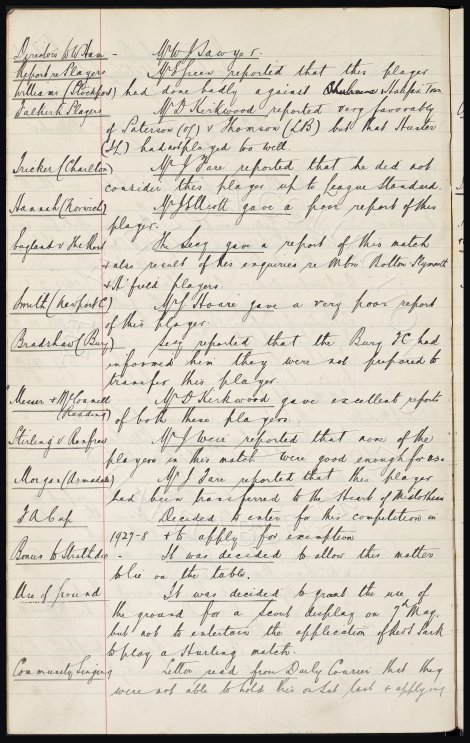 Directors to W Ham - Mr W J Sawyer.
Report re Players Mr S Green reported that this player
Williams (Stockport) had done badly against Halifax Town
Falkirk Players Mr D Kirkwood reported very favorably
of Paterson (OF) & Thomson (LB) but that Hunter
(IL) had not played too well.
Tricker (Charlton) Mr J Fare reported that he did not
consider this player up to League Standard.
Hannah (Norwich) Mr J S Alcott gave a poor report of this
player.
England v The Rest The Secy gave a report of this match
& also result of his enquiries re W Bro Bolton Plymouth
& N'field players
Smith (Newport C) Mr J Hoare gave a very poor report
of this player.
Bradshaw (Bury) Secy reported that the Bury FC had
informed him they were not prepared to
transfer this player.
Messer & McConnell Mr D Kirkwood gave excellent reports
(Reading) of both these players.
Stirling v Renfrew Mr J Weir reported that none of the
players in this match were good enough for us
Morgan (Armadale) Mr J Fare reported that this player
had been transferred to the Heart of Midlothian
F A Cup Decided to enter for this competition in
1927-8 & to apply for exemption
Bonus to Strathdee - It was decided to allow this matter
to lie on the table.
Use of Ground It was decided to grant the use of
the ground for a Scout display on 7th May.
but not to entertain the application of Park
to play a Hurling match.
Community Singing Letter read from Daily Courier that they
were not able to hold this on Sat last & applying